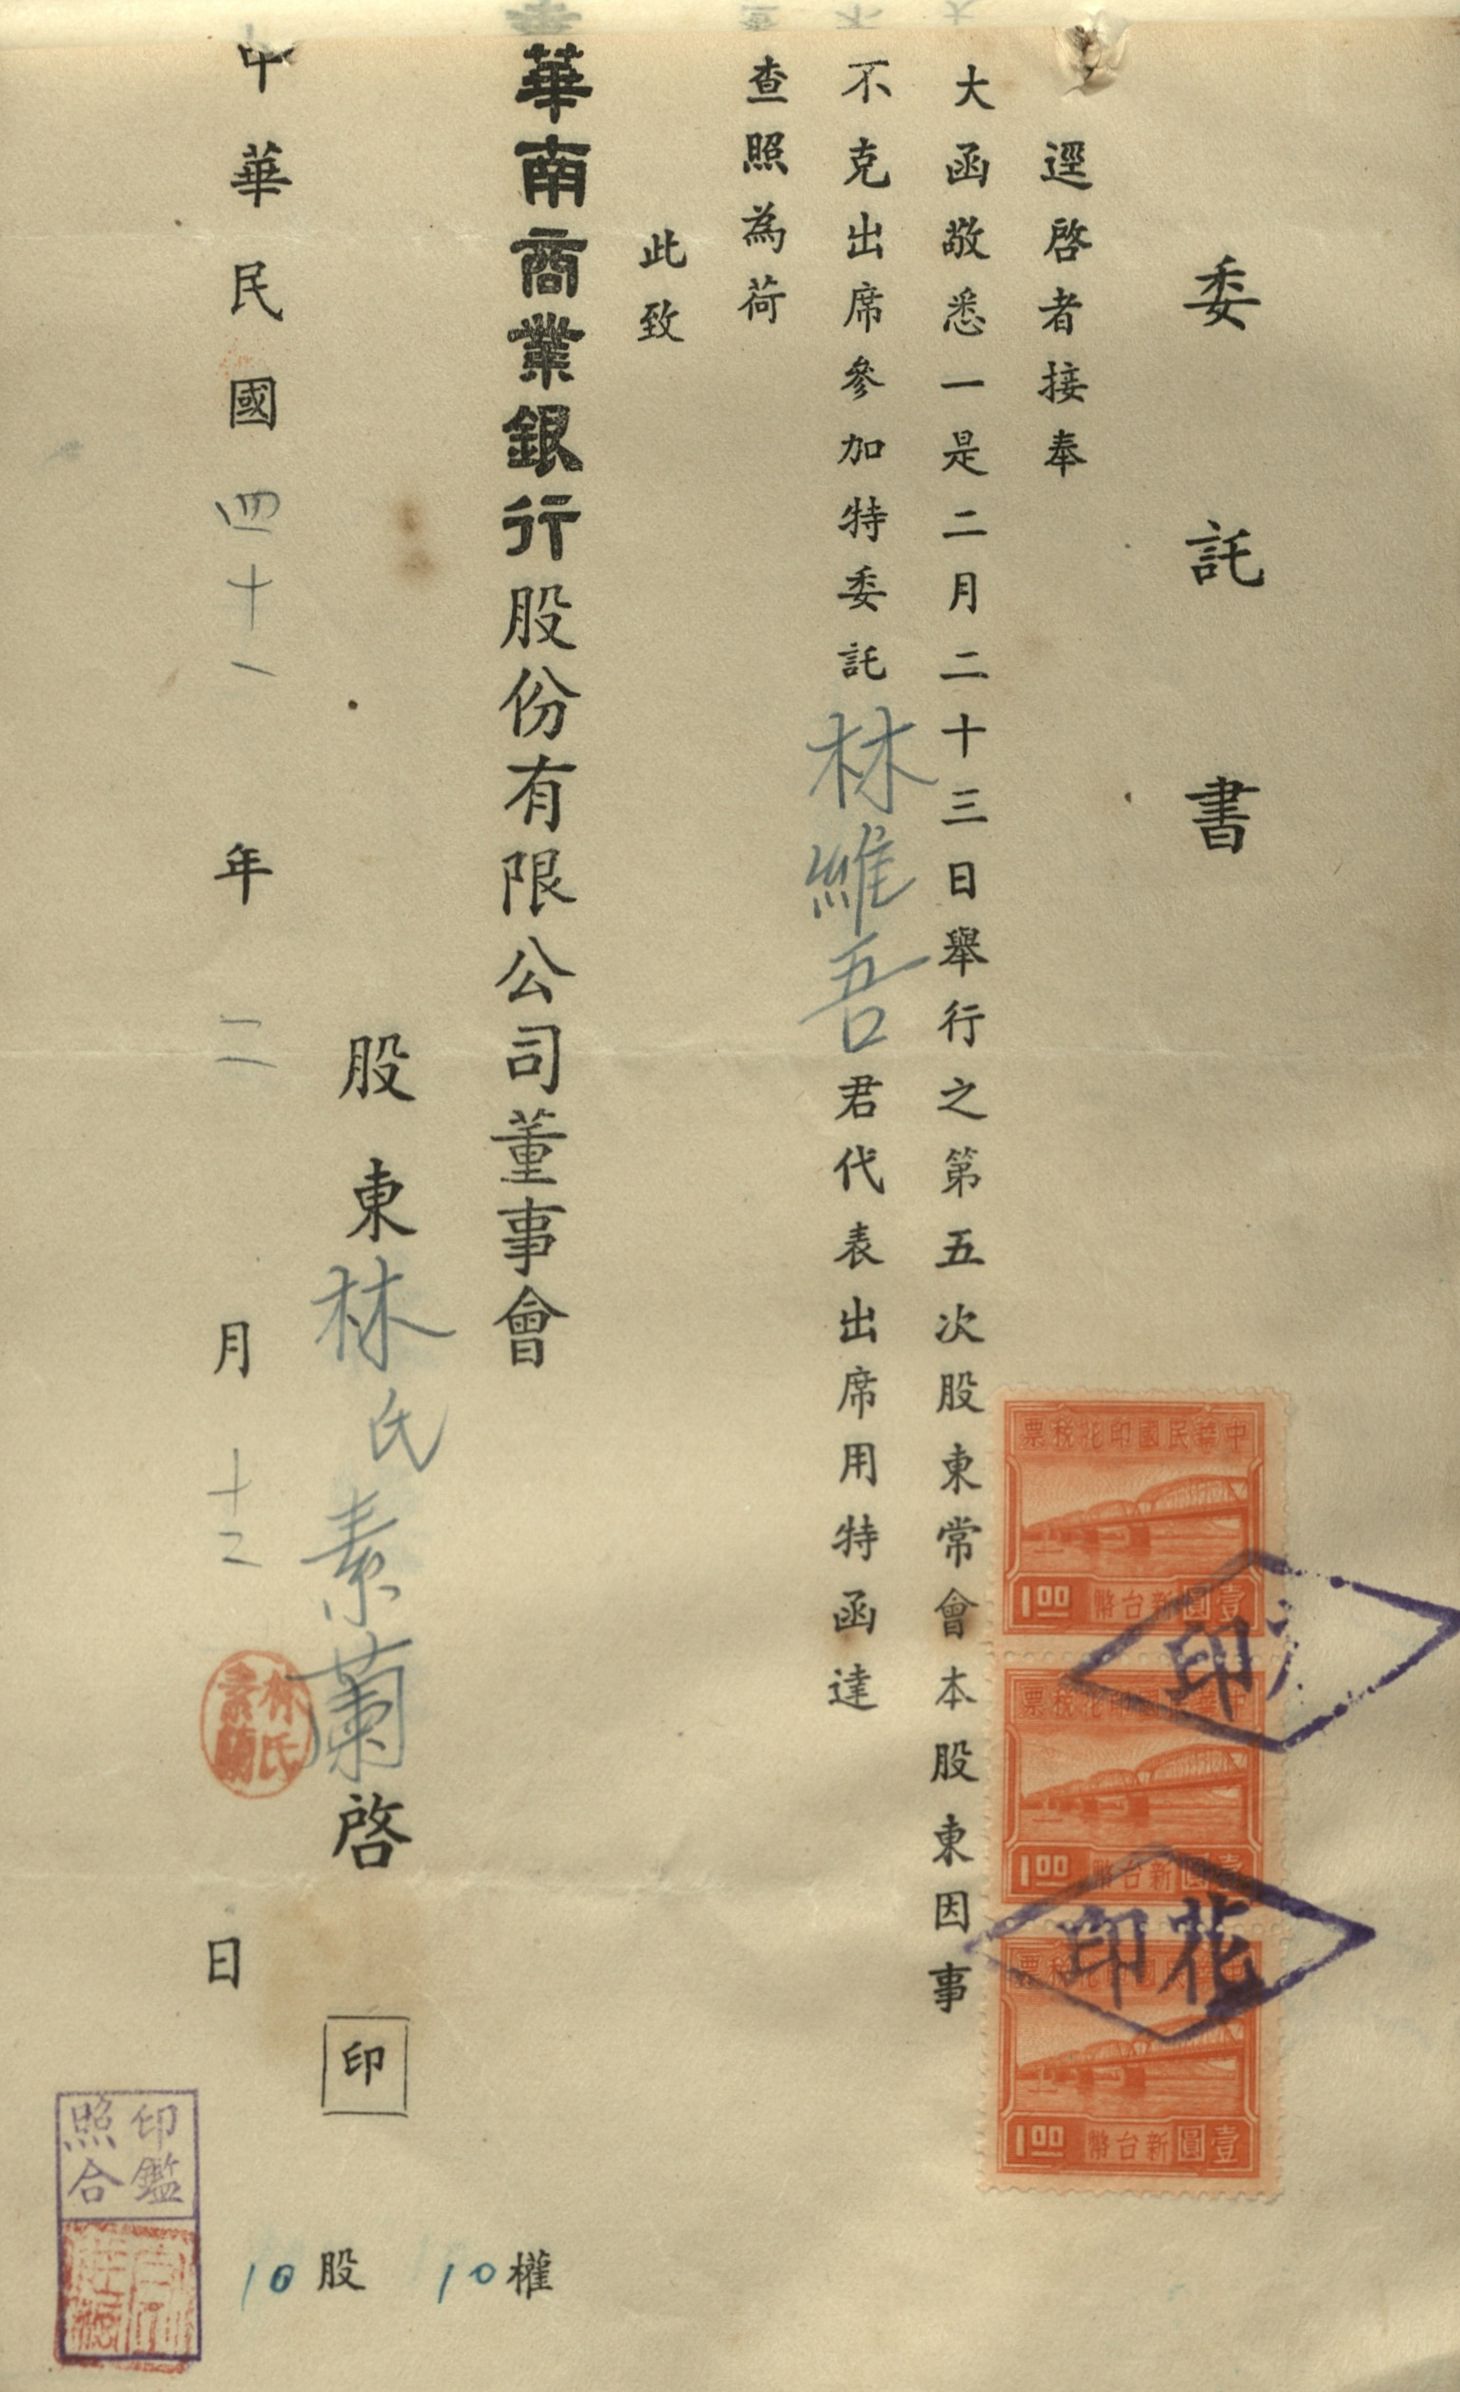 委託書
逕啓者接奉
大函敬悉一是二月二十三日舉行之第五次股東常會本股東因事
不克出席參加特委託林維吾君代表出席用特函達
查照為荷
此致
華南商業銀行股份有限公司董事會
股東林氏素蘭啓
印
林氏素蘭
中華民國四十一年二月十二日
10股 10權
印鑑照合
中華民國印花稅票
1.00 壹圓新台幣
中華民國印花稅票
1.00 壹圓新台幣
中華民國印花稅票
1.00 壹圓新台幣
花印
花印